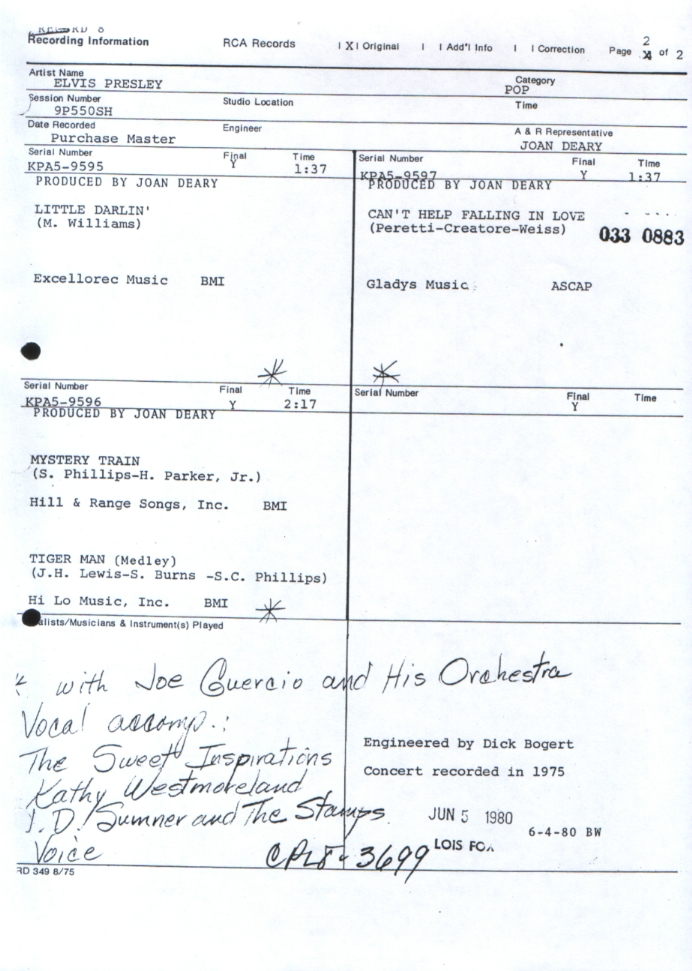 Recording Information RCA Records | X | Original | | Add'l Info | | Correction Page 2 of 2
Artist Name
ELVIS PRESLEY
Category
POP
Session Number
9P550SH
Studio Location
Time
Date Recorded
Purchase Master
Engineer
A & R Representative
JOAN DEARY
Serial Number Final Time
KPA5-9595 Y 1:37
PRODUCED BY JOAN DEARY
LITTLE DARLIN'
(M. Williams)
Excellorec Music BMI
*
Serial Number Final Time
KPA5-9597 Y 1:37
PRODUCED BY JOAN DEARY
CAN'T HELP FALLING IN LOVE
(Peretti-Creatore-Weiss)
033 0883
Gladys Music ASCAP
*
Serial Number Final Time
KPA5-9596 Y 2:17
PRODUCED BY JOAN DEARY
MYSTERY TRAIN
(S. Phillips-H. Parker, Jr.)
Hill & Range Songs, Inc. BMI
TIGER MAN (Medley)
(J.H. Lewis-S. Burns -S.C. Phillips)
Hi Lo Music, Inc. BMI *
Serial Number Final Time
Y
alists/Musicians & Instrument(s) Played
* with Joe Guercio and His Orchestra
Vocal accomp.:
The Sweet Inspirations
Kathy Westmoreland
J.D. Sumner and The Stamps
Voice
CPL8-3699
Engineered by Dick Bogert
Concert recorded in 1975
JUN 5 1980
6-4-80 BW
LOIS
RD 349 8/75